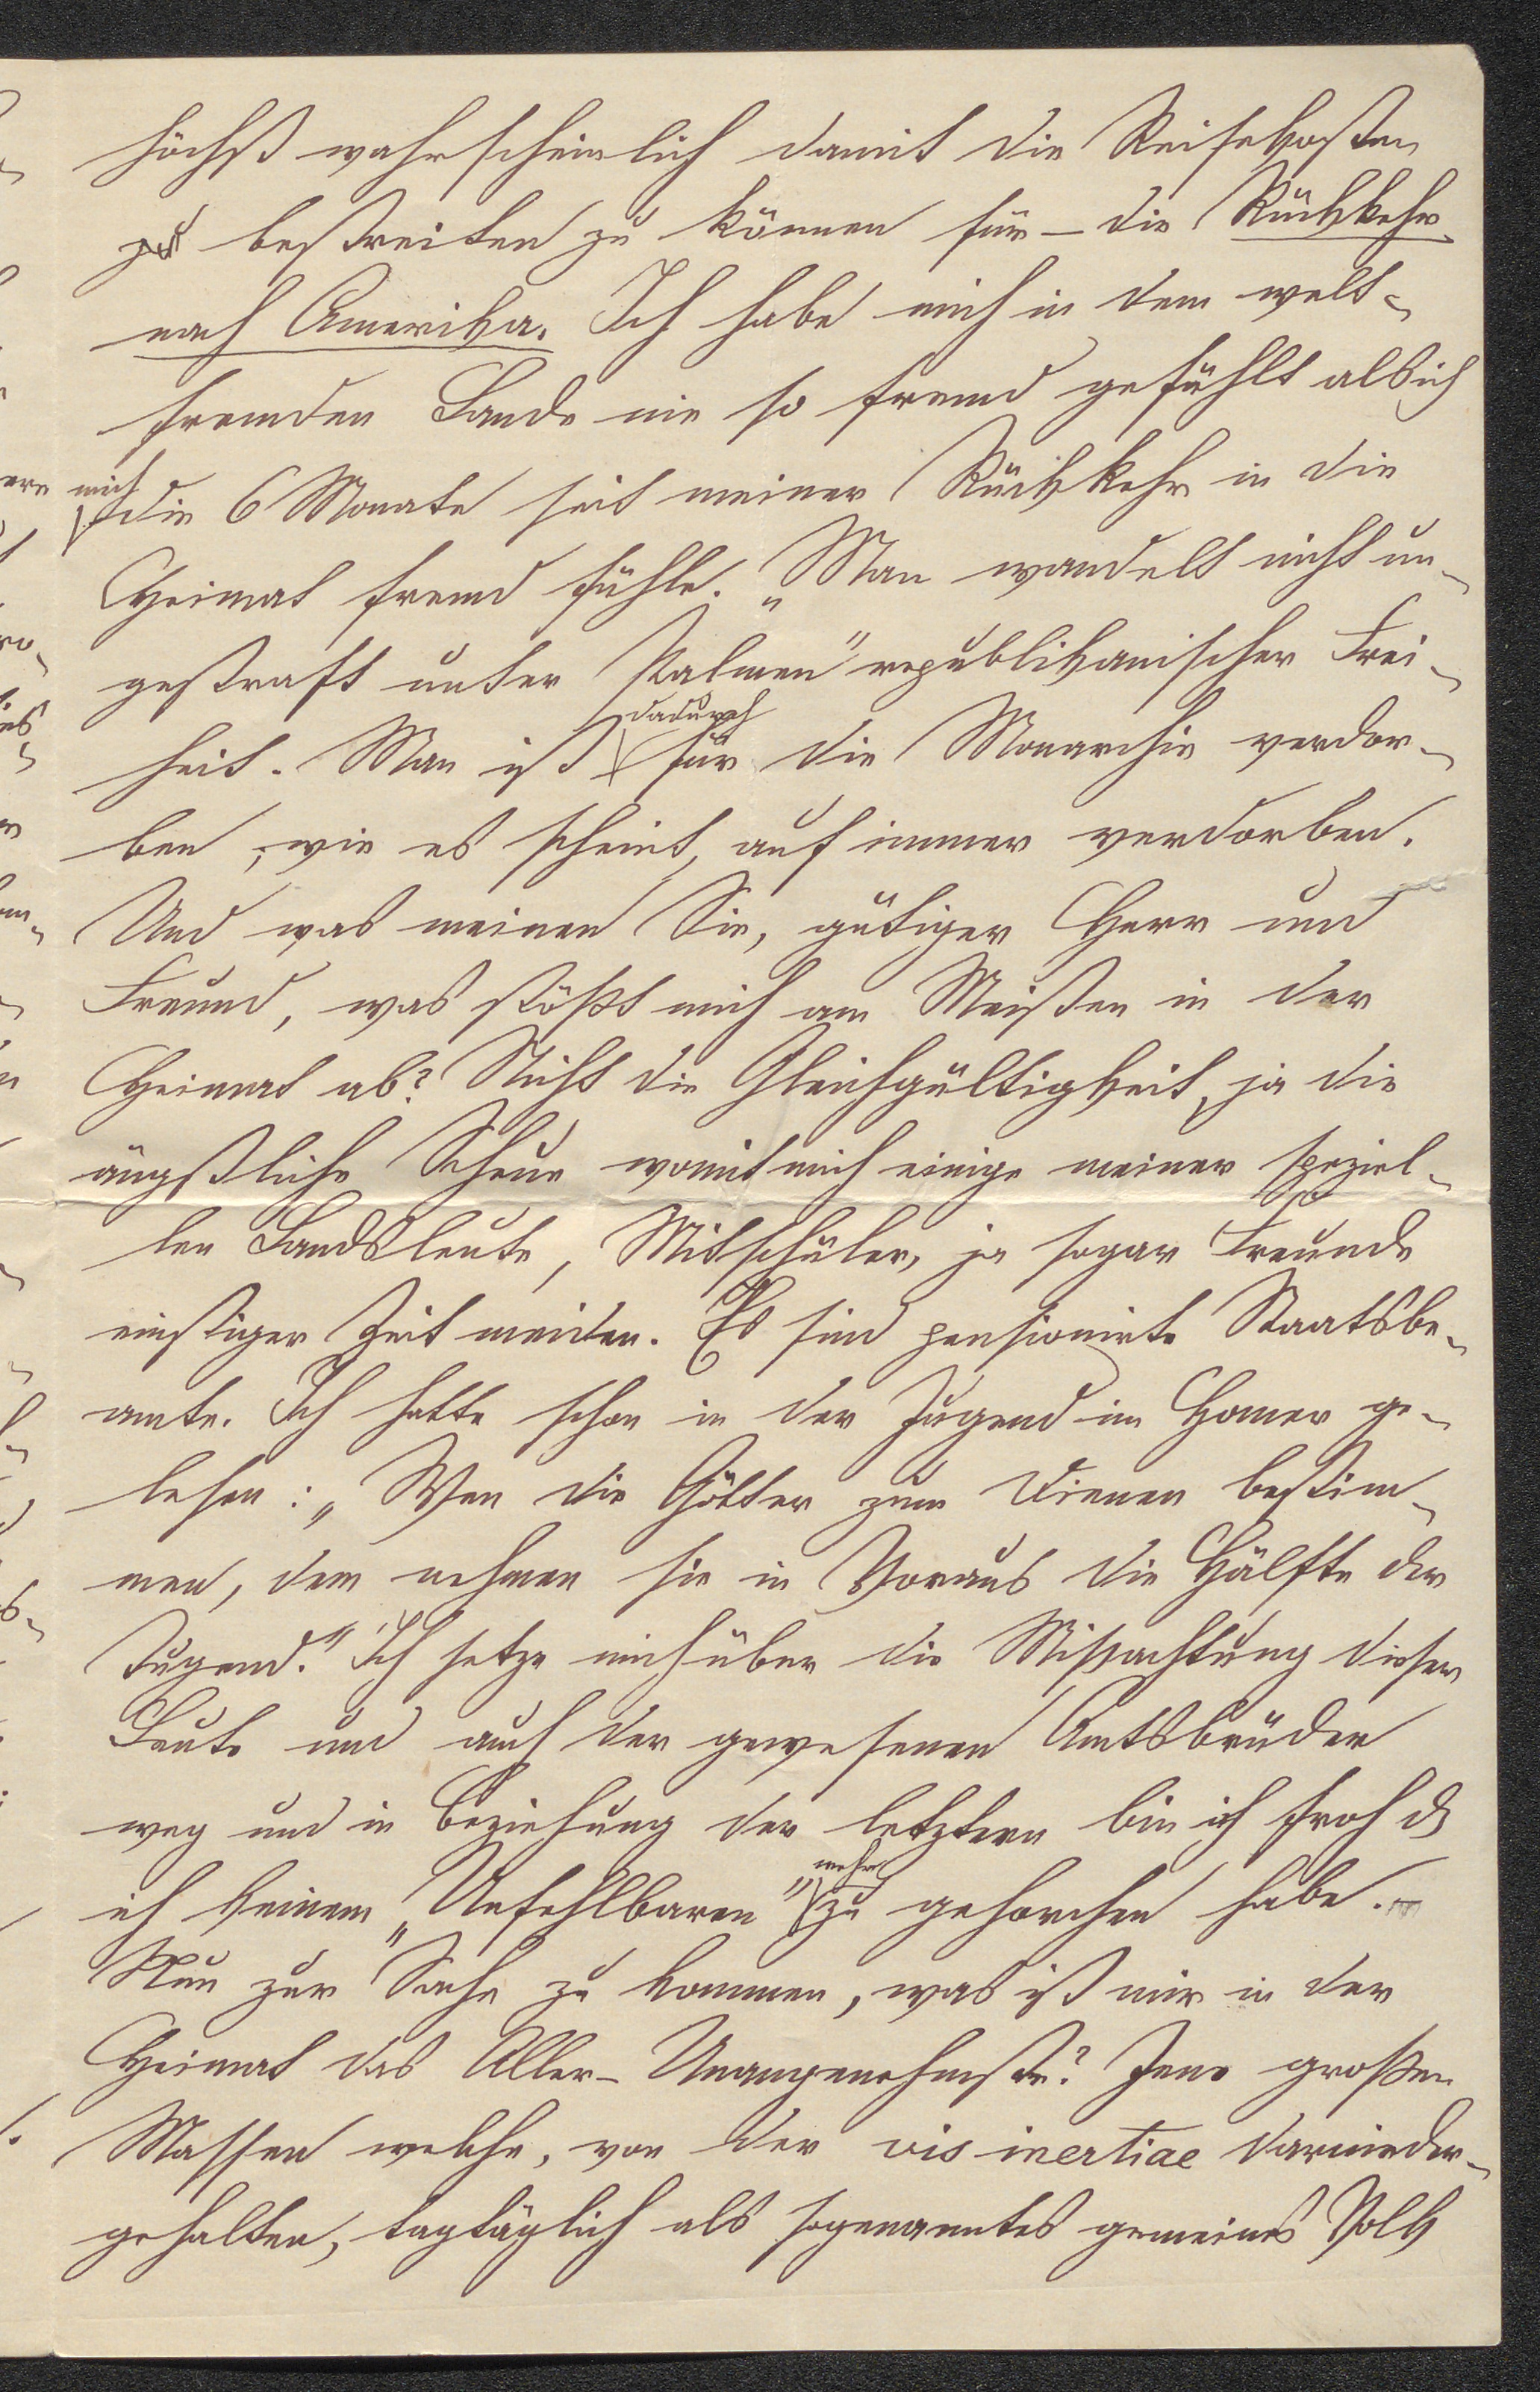 höchst wahrscheinlich damit die Reisekosten
zu bestreiten zu können für – die Rückkehr
nach Amerika. Ich habe mich in dem welt-
fremden Lande nie so fremd gefühlt als ich
mich
die 6 Monate seit meiner Rückkehr in die
Heimat fremd fühle. „Man wandelt nicht un-
gestraft unter Palmen" republikanischer Frei-
dadurch
heit. Man ist für die Monarchie verdor-
ben, wie es scheint, auf immer verdorben.
Und was meinen Sie, gütiger Herr und
Freund, was stößt mich am Meisten in der
Heimat ab? Nicht die Gleichgültigkeit, ja die
ängstliche Scheue womit mich einige meiner speziel-
len Landsleute, Mitschüler, ja sogar Freunde
einstiger Zeit meiden. Es sind pensionirte Staatsbe-
amte. Ich hatte schon in der Jugend im Homer ge-
lesen: „Wen die Götter zum Dienen bestim-
men, dem nehmen sie in Voraus die Hälfte der
Tugend." Ich setze mich über die Mißachtung dieser
Leute und auch der gewesenen Amtsbrüder
weg und in Beziehung der letztern bin ich froh dß
mehr
ich keinem „Unfehlbaren" zu gehorchen habe. –
Nun zur Sache zu kommen, was ist mir in der
Heimat das Aller-Unangenehmste? Jene großen
Massen welche, von der vis inertiae darnieder-
gehalten, tagtäglich als sogenanntes gemeines Volk